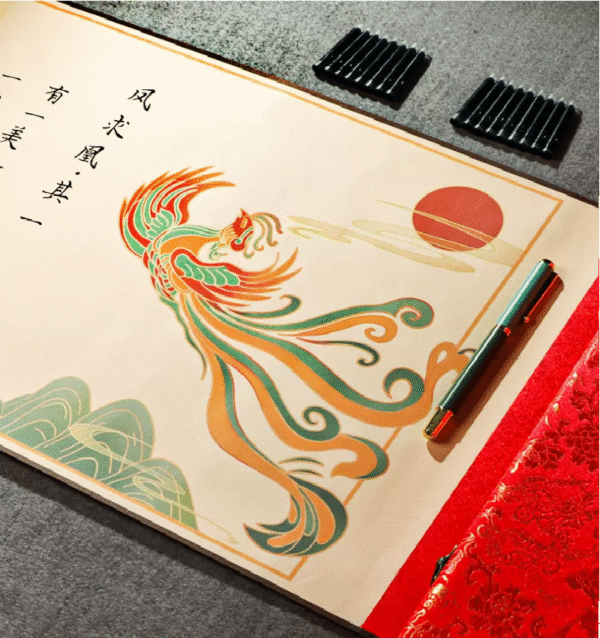 凤求凰·其一
有一美
一